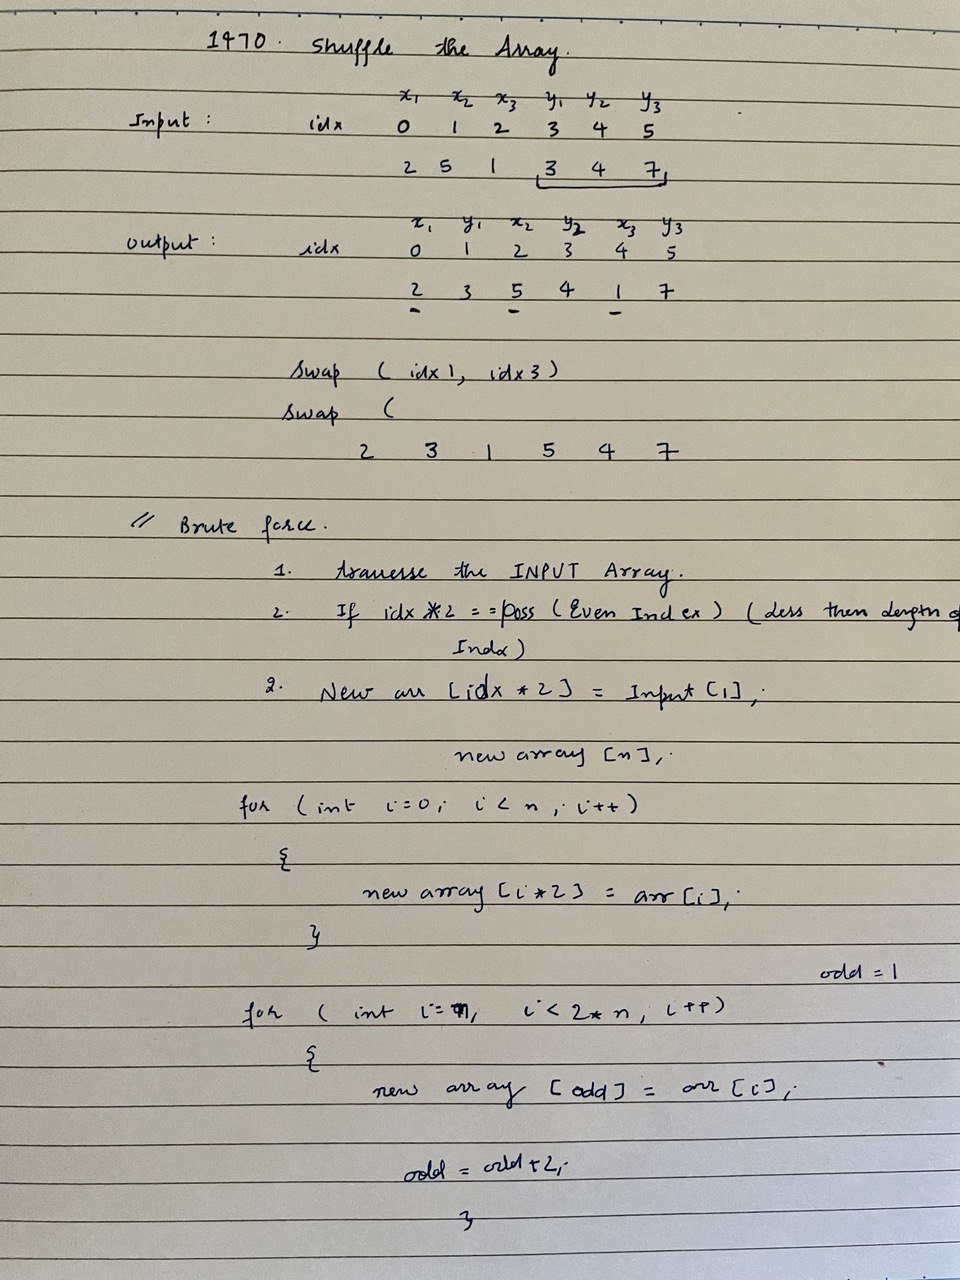 1470. Shuffle the Array.
x1 x2 x3 y1 y2 y3
Input : idx 0 1 2 3 4 5
2 5 1 3 4 7
x1 y1 x2 y2 x3 y3
output : idx 0 1 2 3 4 5
2 3 5 4 1 7
Swap ( idx1, idx3)
Swap (
2 3 1 5 4 7
// Brute force.
1. traverse the INPUT Array.
2. If idx *2 == poss (Even Index) (Less then Length of
Indx)
2. New arr [idx * 2] = Input [i];
new array [n];
for (int i=0; i < n ; i++)
{
new array [i*2] = arr [i];
}
odd = 1
for ( int i= n; i < 2* n; i++)
{
new array [odd] = arr [i];
odd = odd+2;
}